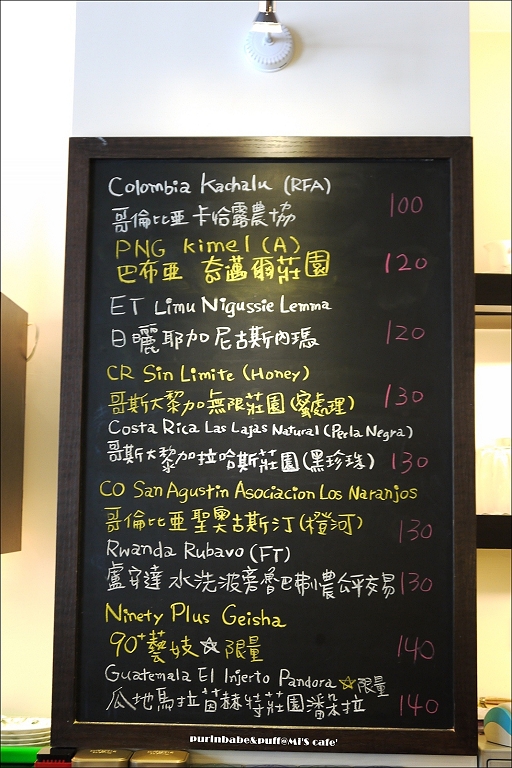 Colombia Kachalu (RFA)
哥倫比亞卡恰露農協 100
PNG Kimel (A)
巴布亞 奇邁爾莊園 120
ET Limu Nigussie Lemma
日曬耶加尼古斯內瑪 120
CR Sin Limite (Honey)
哥斯大黎加無限莊園(蜜處理) 130
Costa Rica Las Lajas Natural (Perla Negra)
哥斯大黎加拉哈斯莊園(黑珍珠) 130
CO San Agustin Asociacion Los Naranjos
哥倫比亞聖奧古斯汀(橙河) 130
Rwanda Rubavo (FT)
盧安達 水洗 公平交易 130
Ninety Plus Geisha
90+藝妓☆限量 140
Guatemala El Injerto Pandora ☆限量
瓜地馬拉茵赫特莊園潘朵拉 140
purinbabe&puff@Mi's cafe'